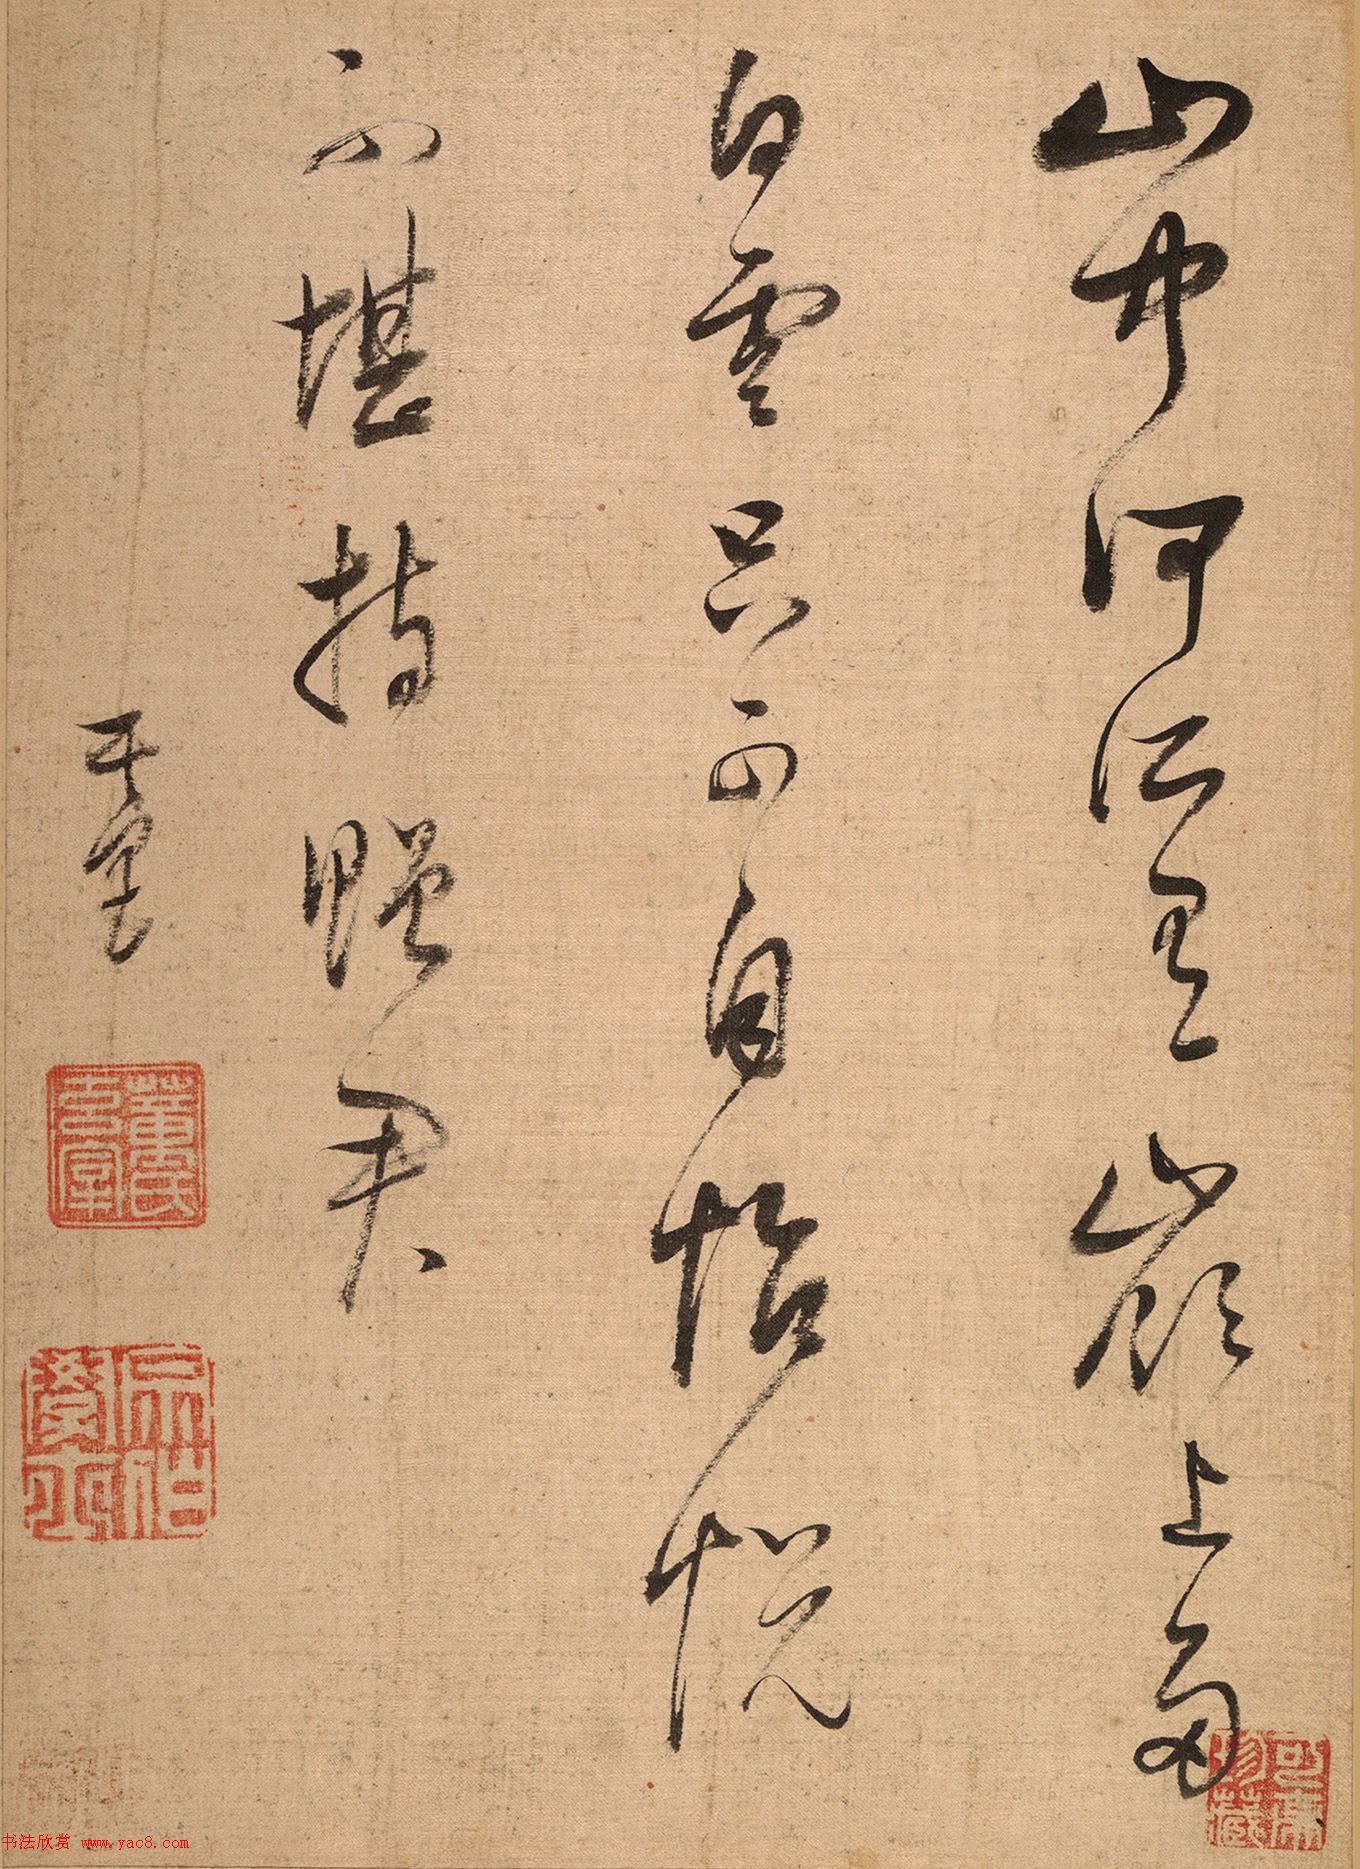 山中何所有嶺上多
白雲只可自怡悅
不堪持贈君
玄宰
董氏玄宰
书法欣赏 www.yac8.com